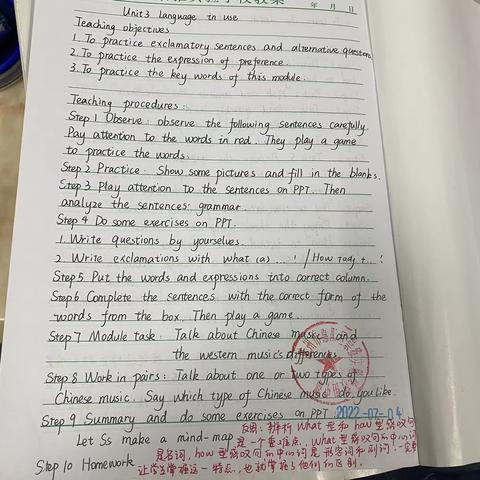 年 月 日
Unit 3 Language in use
Teaching objectives
1. To practice exclamatory sentences and alternative questions
2. To practice the expression of preference.
3. To practice the key words of this module.
Teaching procedures:
Step 1 Observe: observe the following sentences carefully.
Pay attention to the words in red. They play a game
to practice the words.
Step 2 Practice. Show some pictures and fill in the blanks.
Step 3 Play attention to the sentences on PPT. Then
analyze the sentences' grammar.
Step 4 Do some exercises on PPT.
1. Write questions by yourselves.
2. Write exclamations with what (a) ...! / How
Step 5 Put the words and expressions into correct column.
Step 6 Complete the sentences with the correct form of the
words from the box. Then play a game.
Step 7 Module task: Talk about Chinese music and
the western music's differences
Step 8 Work in pairs: Talk about one or two types of
Chinese music. Say which type of Chinese music do you like.
Step 9 Summary and do some exercises on PPT. 2022-07-04
Let Ss make a mind-map
Step 10 Homework
反思: 辨析 What 型和 how 型感叹句
是一个重难点, what 型感叹句中心词
是名词, how 型感叹句中心词是形容词和副词,一定要
让学生掌握这一特点,也就掌握了他们的区别.